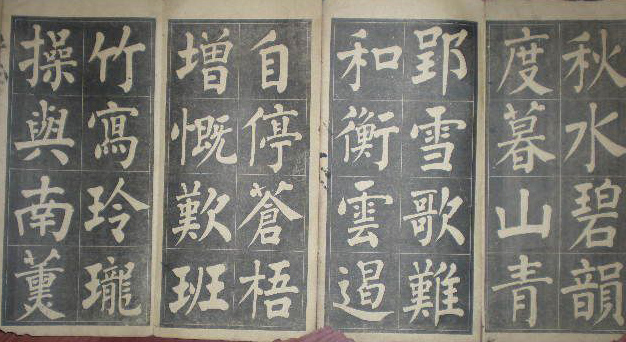 秋水碧韻
度暮山青
郢雪歌難
和衡雲遏
自停蒼梧
增慨歎班
竹寫玲瓏
操與南薰